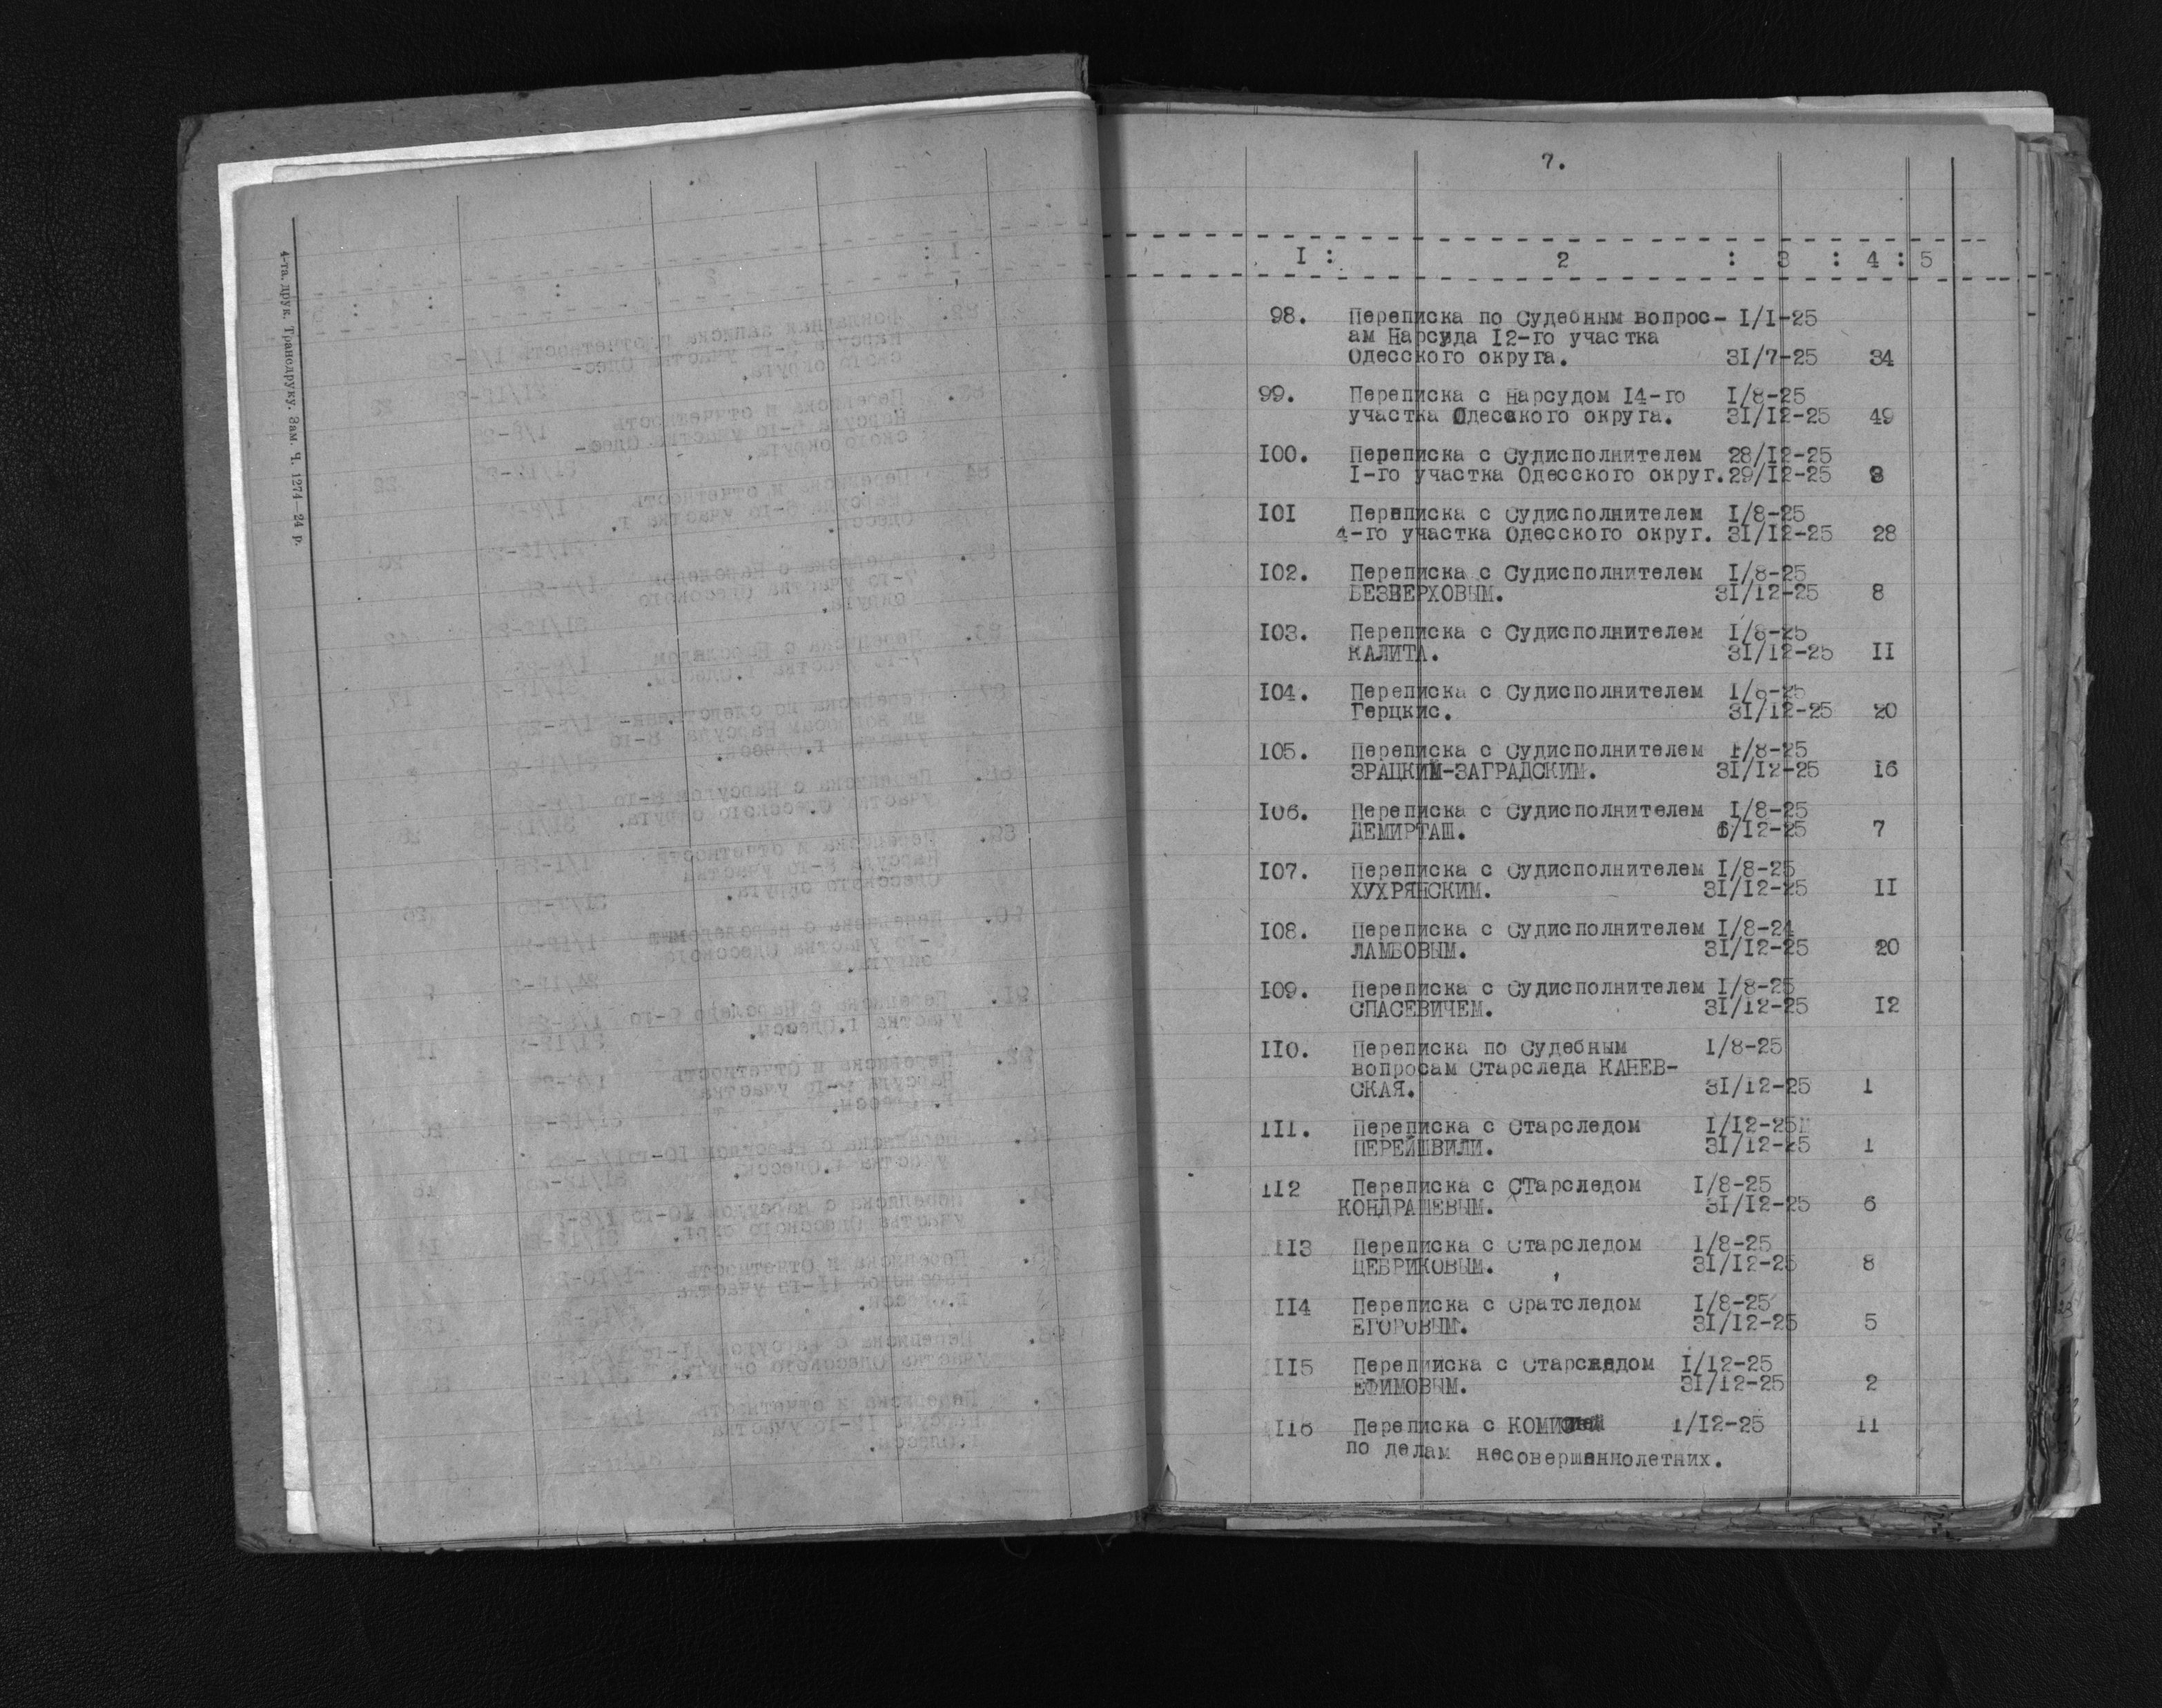 4-та друк. Трансдруку. Зам. Ч. 1274—24 р.
7.
I : 2 : 3 : 4 : 5
98. Переписка по Судебным вопрос- I/I-25
ам Нарсуда I2-го участка
Одесского округа. 3I/7-25 34
99. Переписка с Нарсудом I4-го I/8-25
участка Одесского округа. 3I/I2-25 49
I00. Переписка с Судисполнителем 28/I2-25
I-го участка Одесского округ. 29/I2-25
I0I Переписка с Судисполнителем I/8-25
4-го участка Одесского округ. 3I/I2-25 28
I02. Переписка с Судисполнителем I/8-25
БЕЗВЕРХОВЫМ. 3I/I2-25 8
I03. Переписка с Судисполнителем I/8-25
КАЛИТА. 3I/I2-25 II
I04. Переписка с Судисполнителем I/8-25
Герцкис. 3I/I2-25 20
I05. Переписка с Судисполнителем I/8-25
ЗРАЦКИМ-ЗАГРАДСКИМ. 3I/I2-25 I6
I06. Переписка с Судисполнителем I/8-25
ДЕМИРТАШ. 6/I2-25 7
I07. Переписка с Судисполнителем I/8-25
ХУХРЯНСКИМ. 3I/I2-25 II
I08. Переписка с Судисполнителем I/8-24
ЛАМБОВЫМ. 3I/I2-25 20
I09. Переписка с Судисполнителем I/8-25
СПАСЕВИЧЕМ. 3I/I2-25 I2
II0. Переписка по Судебным I/8-25
вопросам Старследа КАНЕВ-
СКАЯ. 3I/I2-25 I
III. Переписка с Старследом I/I2-25
ПЕРЕЙШВИЛИ. 3I/I2-25 I
II2 Переписка с СТарследом I/8-25
КОНДРАШЕВЫМ. 3I/I2-25 6
II3 Переписка с Старследом I/8-25
ЦЕБРИКОВЫМ. 3I/I2-25 8
II4 Переписка с Сратследом I/8-25
ЕГОРОВЫМ. 3I/I2-25 5
II5 Перепииска с Старследом I/I2-25
ЕФИМОВЫМ. 3I/I2-25 2
II6 Переписка с I/I2-25 II
по делам несовершеннолетних.